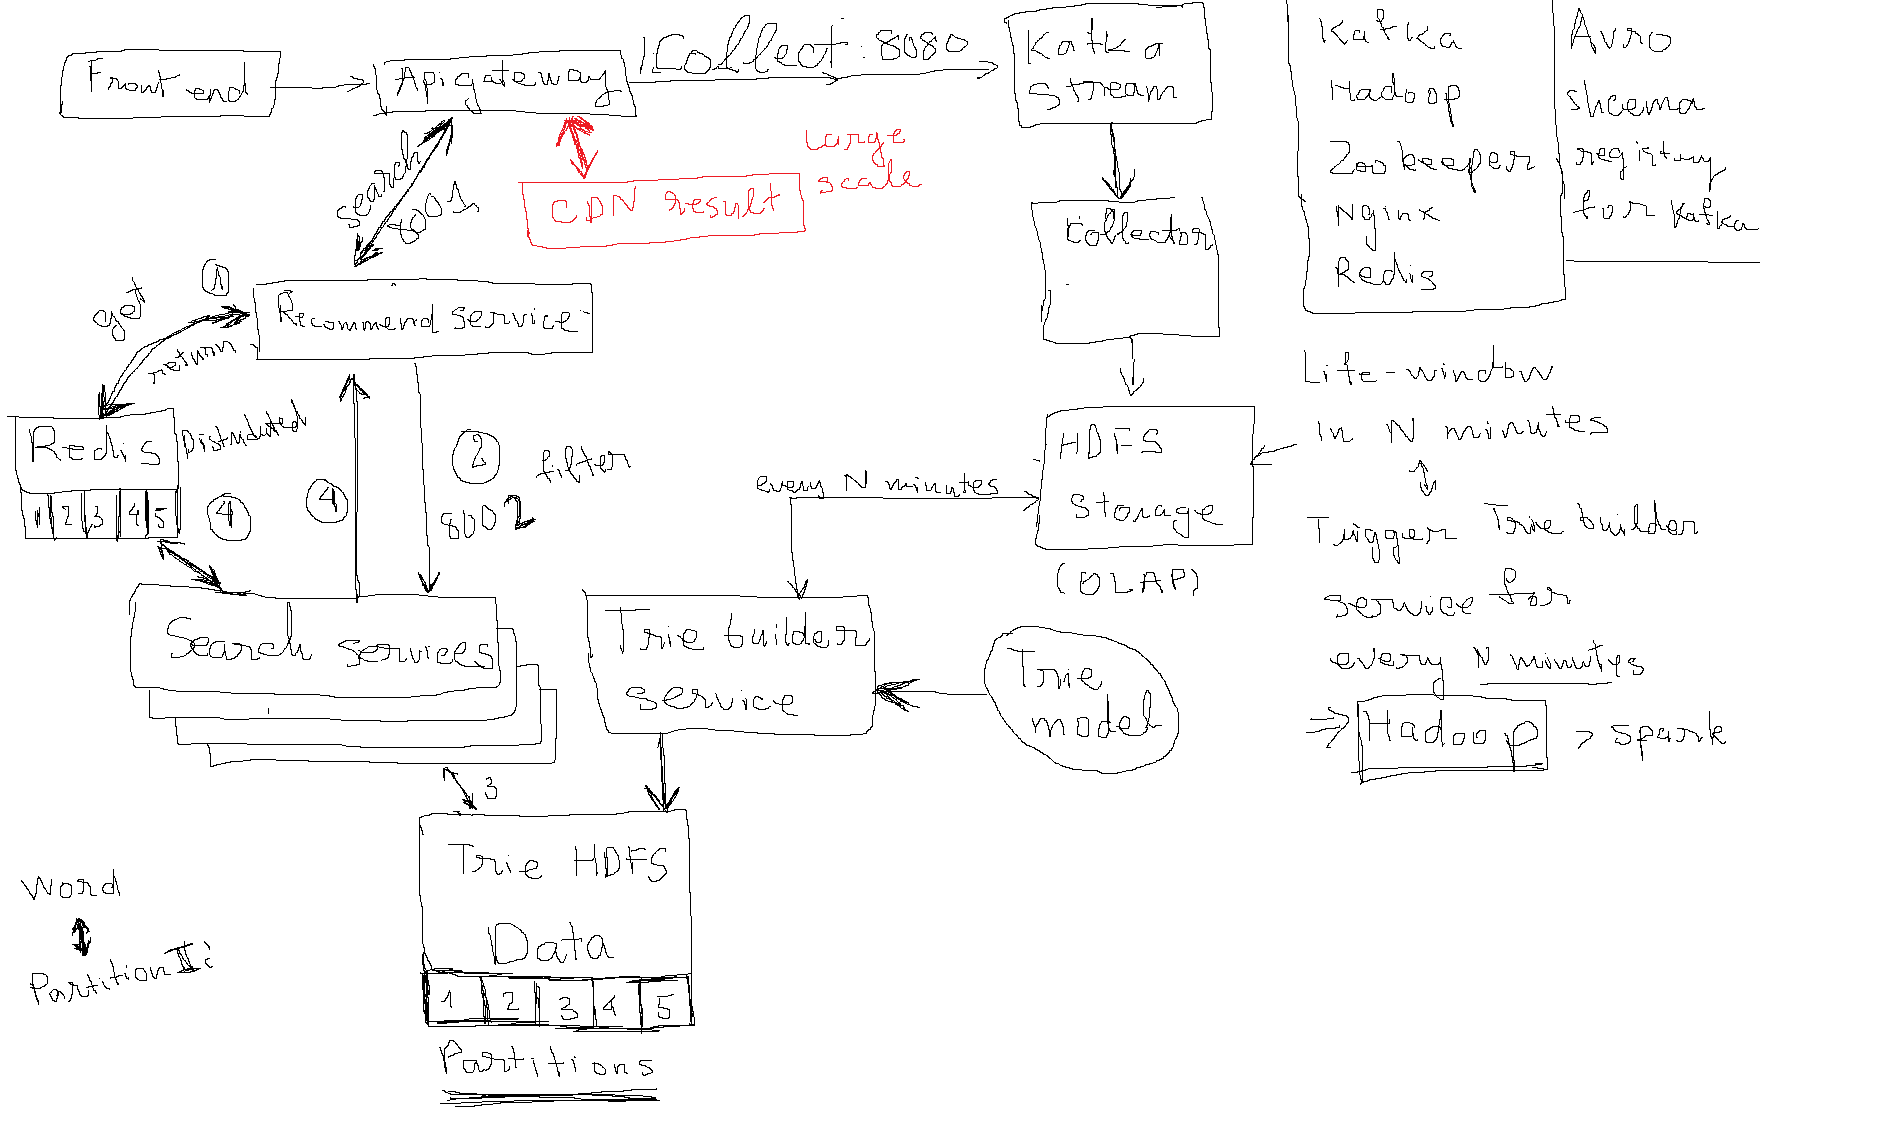 Front end
Api gateway
/Collect : 8080
Kafka
stream
Kafka
Hadoop
Zookeeper
Nginx
Redis
Avro
shcema
registry
for Kafka
search
8001
CDN result
Large
scale
Collector
get
1
return
Recommend service
Redis
Distributed
1 2 3 4 5
4
4
2
filter
8002
every N minutes
HDFS
Storage
(OLAP)
Life-window
in N minutes
Trigger Trie builder
service for
every N minutes
⇒ Hadoop > spark
Search services
Trie builder
service
Trie
model
3
Trie HDFS
Data
1 2 3 4 5
Partitions
Word
Partition I: